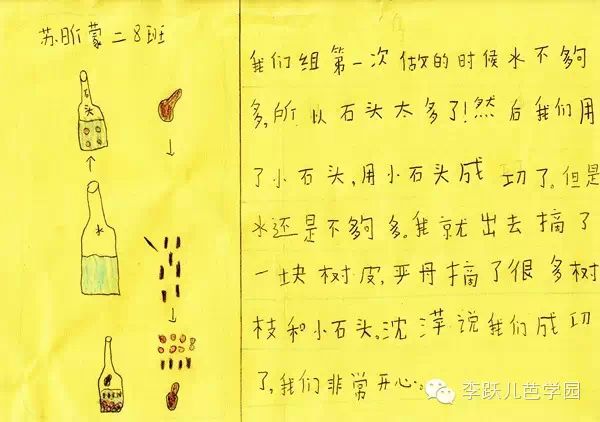 苏昕蒙 二8班
石头
水
我们组第一次做的时候水不够
多,所以石头太多了!然后我们用
了小石头,用小石头成功了。但是
水还是不够多。我就出去摘了
一块树皮,尹丹摘了很多树
枝和小石头,沈萍说我们成功
了,我们非常开心。
李跃儿芭学园